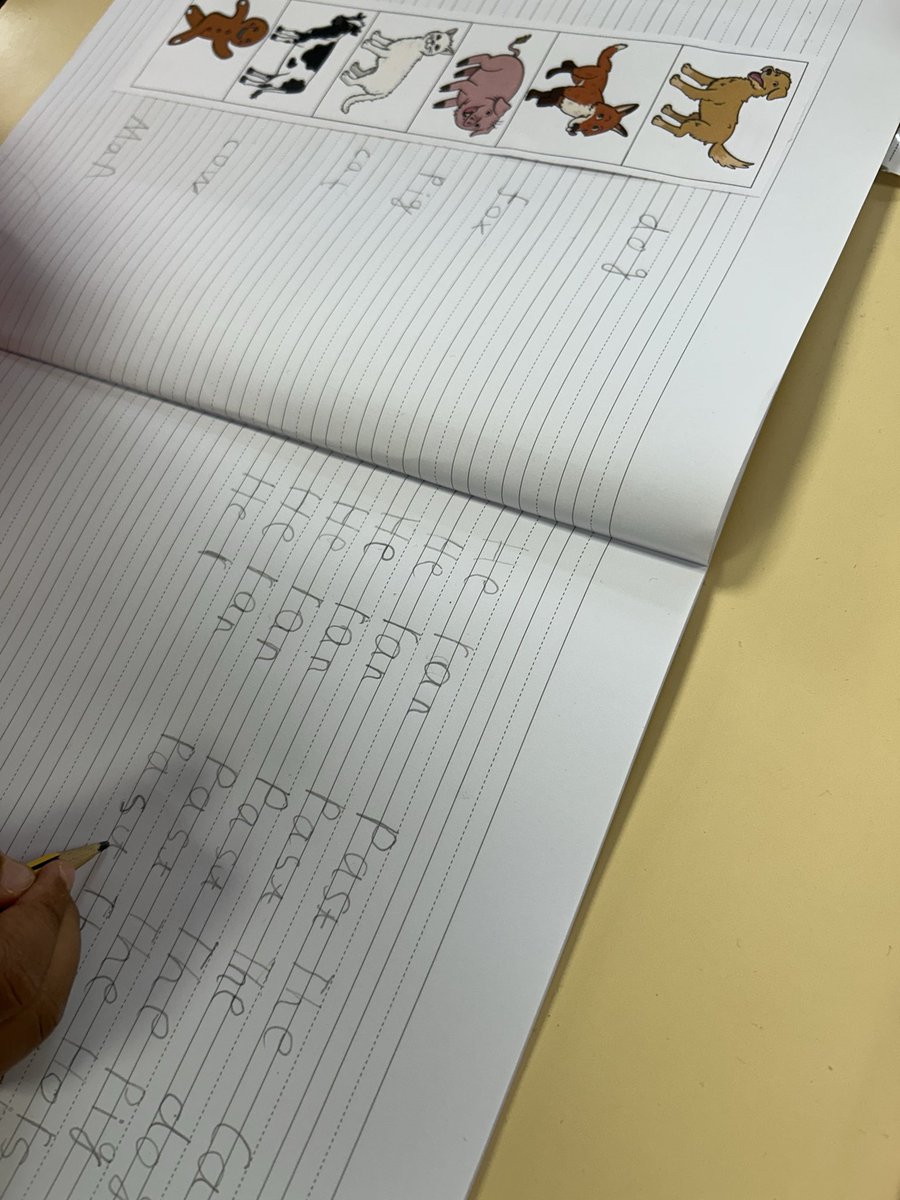 dog
fox
pig
cat
cow
He ran past the ca
He ran past the dog
He ran past the pig
He ran past the
He ran